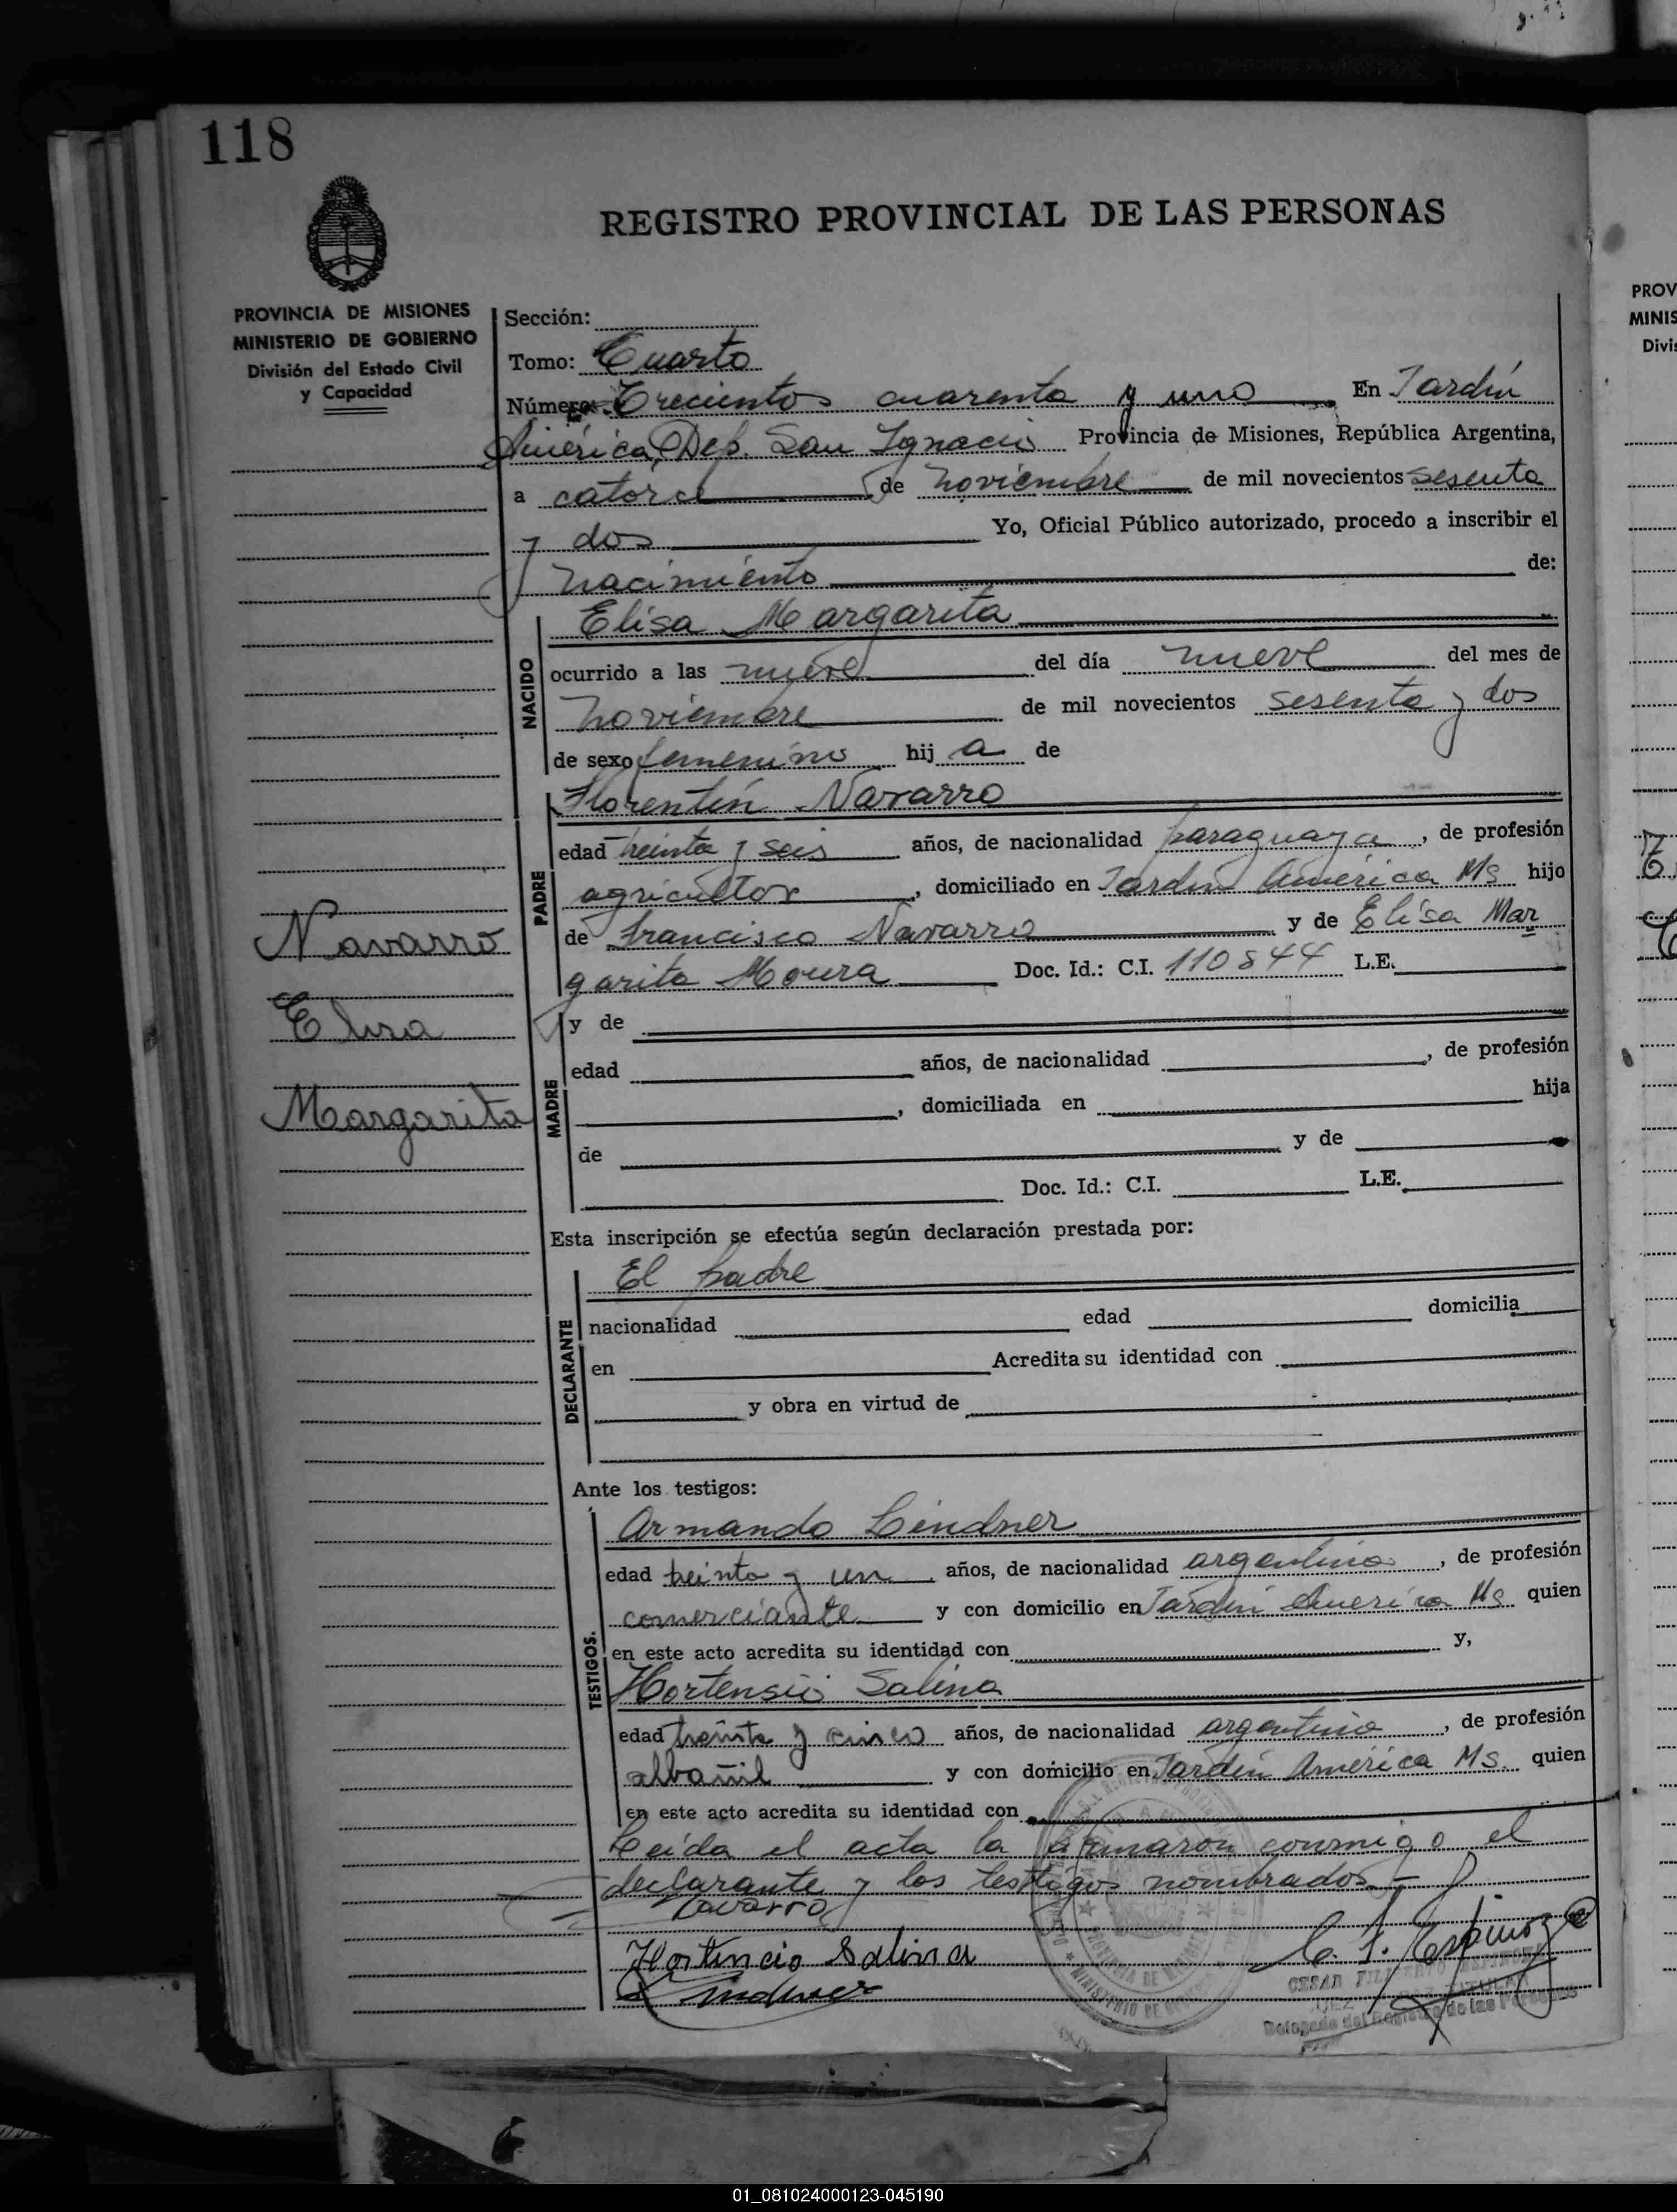 118
REGISTRO PROVINCIAL DE LAS PERSONAS
PROVINCIA DE MISIONES
MINISTERIO DE GOBIERNO
División del Estado Civil
y Capacidad
Sección:
Tomo: Cuarto
Número: Trecientos cuarenta y uno En Jardín
América, Dep. San Ignacio Provincia de Misiones, República Argentina,
a catorce de noviembre de mil novecientos sesenta
y dos Yo, Oficial Público autorizado, procedo a inscribir el
nacimiento de:
NACIDO
Elisa Margarita
ocurrido a las nueve del día nueve del mes de
noviembre de mil novecientos sesenta y dos
de sexo femenino hij a de
PADRE
Florentín Navarro
edad treinta y seis años, de nacionalidad paraguaya, de profesión
agricultor, domiciliado en Jardín América Ms hijo
de Francisco Navarro y de Elisa Mar
garita Moura Doc. Id.: C.I. 110844 L.E.
Navarro
Elisa
Margarita
MADRE
y de
edad años, de nacionalidad , de profesión
, domiciliada en hija
de y de
Doc. Id.: C.I. L.E.
Esta inscripción se efectúa según declaración prestada por:
DECLARANTE
El padre
nacionalidad edad domicilia
en Acredita su identidad con
y obra en virtud de
Ante los testigos:
TESTIGOS.
Armando Lindner
edad treinta y un años, de nacionalidad argentina, de profesión
comerciante y con domicilio en Jardín América Ms quien
en este acto acredita su identidad con y,
Hortensio Salina
edad treinta y cinco años, de nacionalidad argentina, de profesión
albañil y con domicilio en Jardín América Ms. quien
en este acto acredita su identidad con
Leída el acta la firmaron conmigo el
declarante y los testigos nombrados.-
Navarro
Hortincio Salina
Lindner
C. F. Espinoza
CESAR
JUEZ TITULAR
Delegado del Registro de las Personas
PROVINCIA DE MISIONES
MINISTERIO DE
PROV
MINIS
Divi
01_081024000123-045190